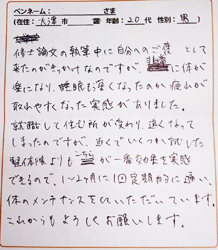 ペンネーム: さま
(在住: 大津市 職 年齢: 20代 性別: 男)
修士論文の執筆中に自分へのご褒として
来たのがきっかけなのですが、非常に体が
楽になり、睡眠も深くなったのか疲れが
取れやすくなった実感がありました。
就職して住む所が変わり、遠くなって
しまったのですが、近くでいくつか試した
整体院よりもこちらが一番効果を実感
できるので、1~2ヶ月に1回定期的に通い、
体のメンテナンスをしていただいています。
これからもよろしくお願いします。